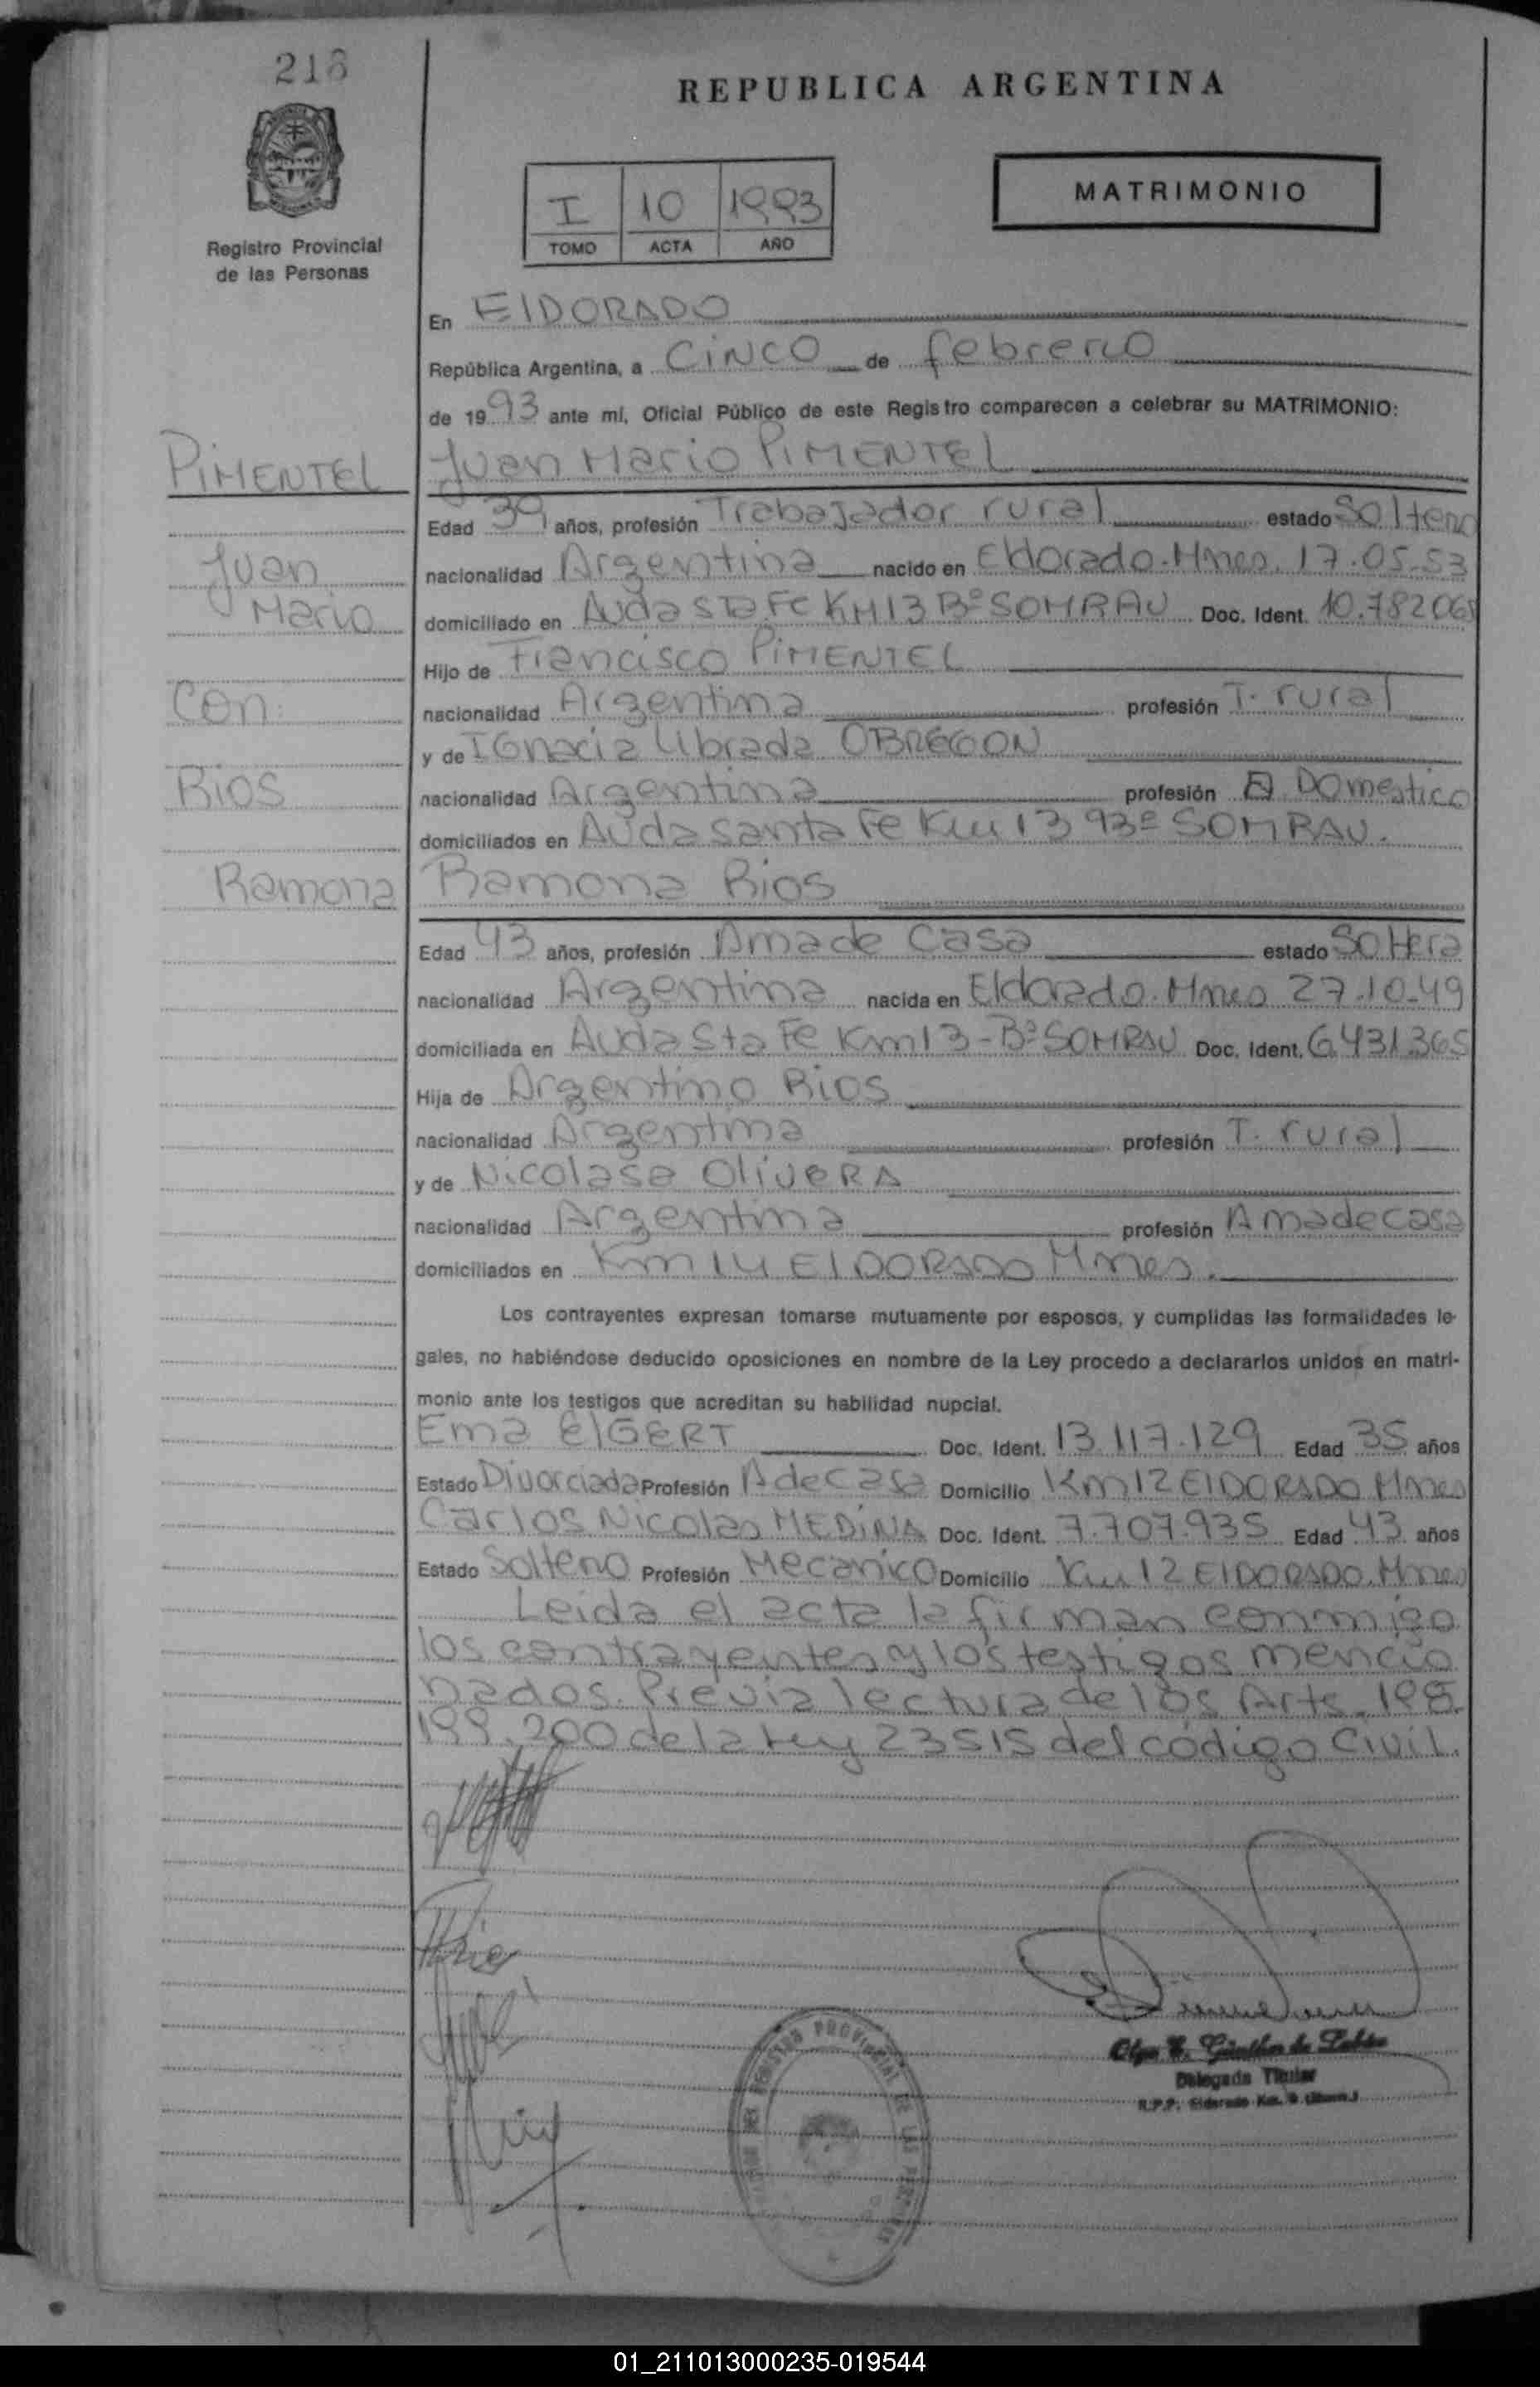 218
REPUBLICA ARGENTINA
I 10 1993
TOMO ACTA AÑO
MATRIMONIO
Registro Provincial
de las Personas
En ElDORADO
República Argentina, a CiNCO de febrero
de 1993 ante mí, Oficial Público de este Registro comparecen a celebrar su MATRIMONIO:
PiMENTEL
Juan Mario PiMENTEL
Edad 39 años, profesión Trabajador rural estado Soltero
Juan
nacionalidad Argentina nacido en Eldorado. Mnes. 17.05-53
Mario
domiciliado en Avda Sta Fe KM13 Bº SOMRAU Doc. Ident. 10.782068
Hijo de Francisco PiMENTEL
Con:
nacionalidad Argentina profesión T. rural
y de IGnacia Librada OBREGON
Rios
nacionalidad Argentina profesión Domestico
domiciliados en Avda Santa Fe Km 13 Bº SOMRAU.
Ramona
Ramona Rios
Edad 43 años, profesión Ama de Casa estado Soltera
nacionalidad Argentina nacida en Eldorado. Mnes 27.10-49
domiciliada en Avda Sta Fe Km13-Bº SOMRAU Doc. Ident. 6.431.365
Hija de Argentino Rios
nacionalidad Argentina profesión T. rural
y de Nicolasa OliveRA
nacionalidad Argentina profesión Ama de casa
domiciliados en Km 14 ElDORADO Mnes.
Los contrayentes expresan tomarse mutuamente por esposos, y cumplidas las formalidades le-
gales, no habiéndose deducido oposiciones en nombre de la Ley procedo a declararlos unidos en matri-
monio ante los testigos que acreditan su habilidad nupcial.
Ema ElGERT Doc. Ident. 13.117.129 Edad 35 años
Estado Divorciada Profesión A de Casa Domicilio Km12 ElDORADO Mnes
Carlos Nicolas MEDiNA Doc. Ident. 7.707.935 Edad 43 años
Estado Soltero Profesión Mecanico Domicilio Km 12 ElDORADO. Mnes
Leida el acta la firman conmigo
los contrayentes y los testigos mencio
nados. Previa lectura de los Arts. 198
199.200 de la Ley 23515 del código Civil.
Delegada Titular
01_211013000235-019544